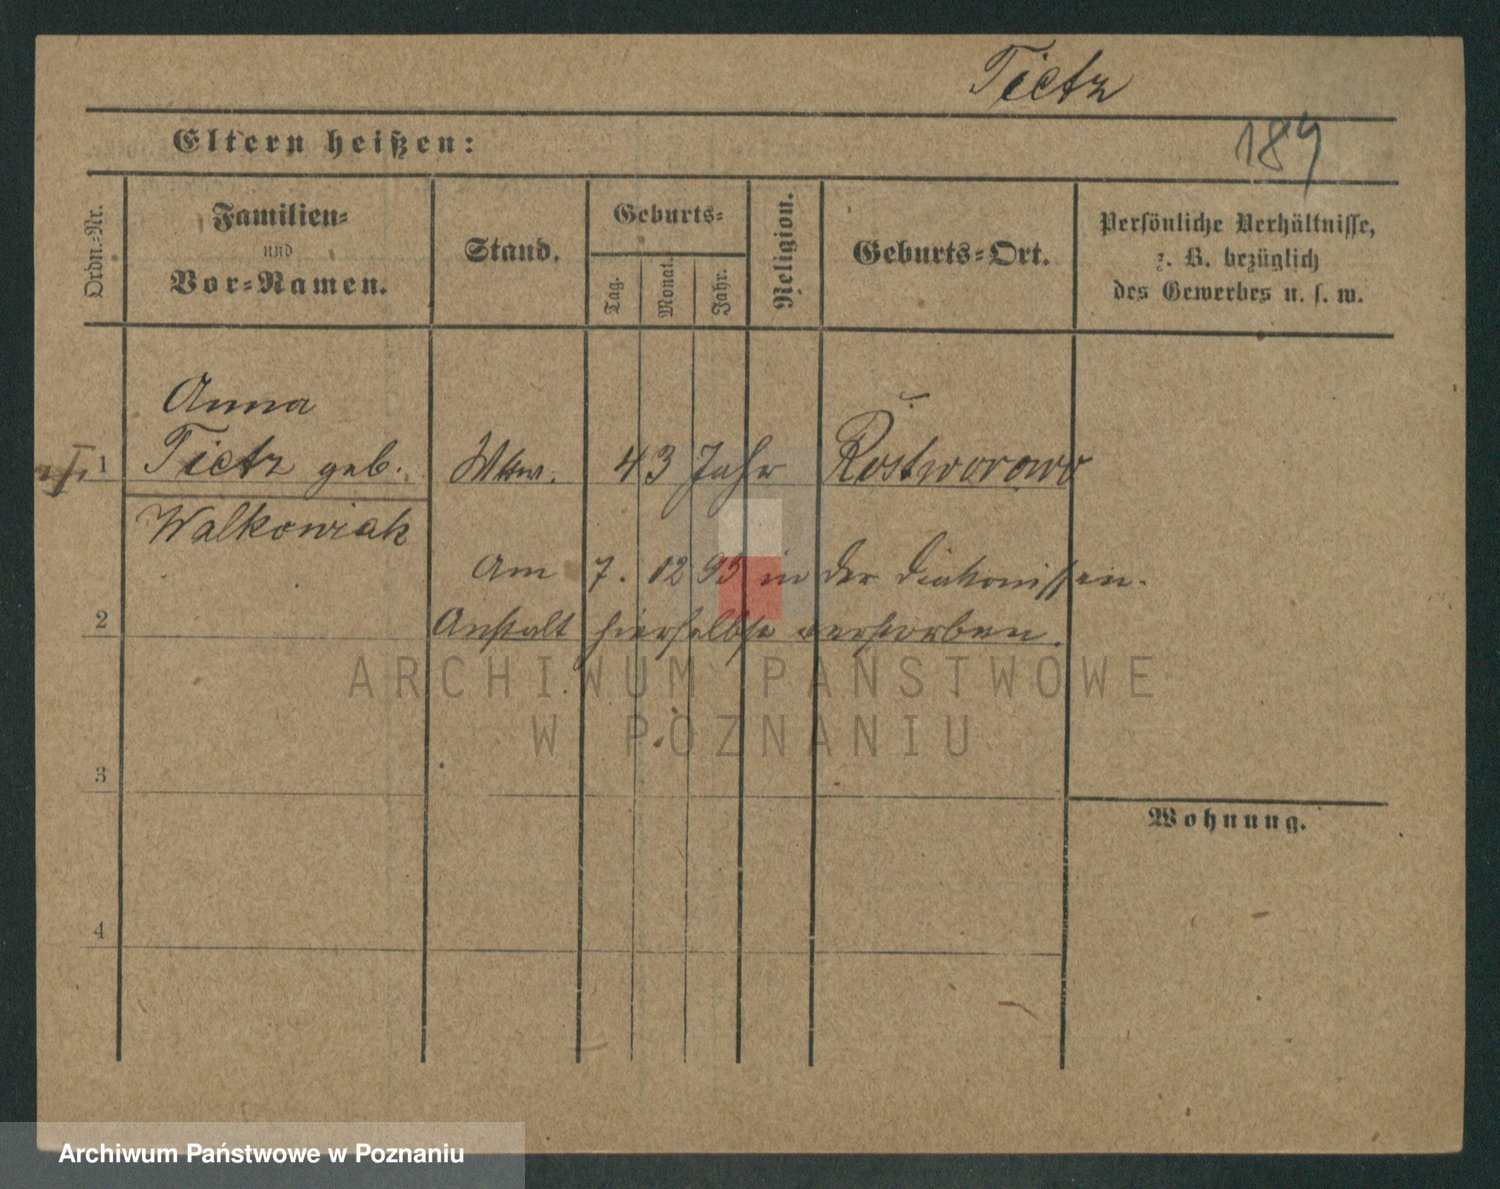 Tietz
189
Eltern heißen:
Ordn.-Nr.
Familien-
und
Vor-Namen.
Stand.
Geburts-
Tag.
Monat.
Jahr.
Religion.
Geburts-Ort.
Persönliche Verhältnisse,
z. B. bezüglich
des Gewerbes u. s. w.
Anna
1 Tietz geb. Wtw. 43 Jahr Rostworowo
Walkowiak
Am 7. 12 95 in der Diakonissen-
2 Anstalt hierselbst verstorben.
ARCHIWUM PAŃSTWOWE
W POZNANIU
3
Wohnung.
4
Archiwum Państwowe w Poznaniu